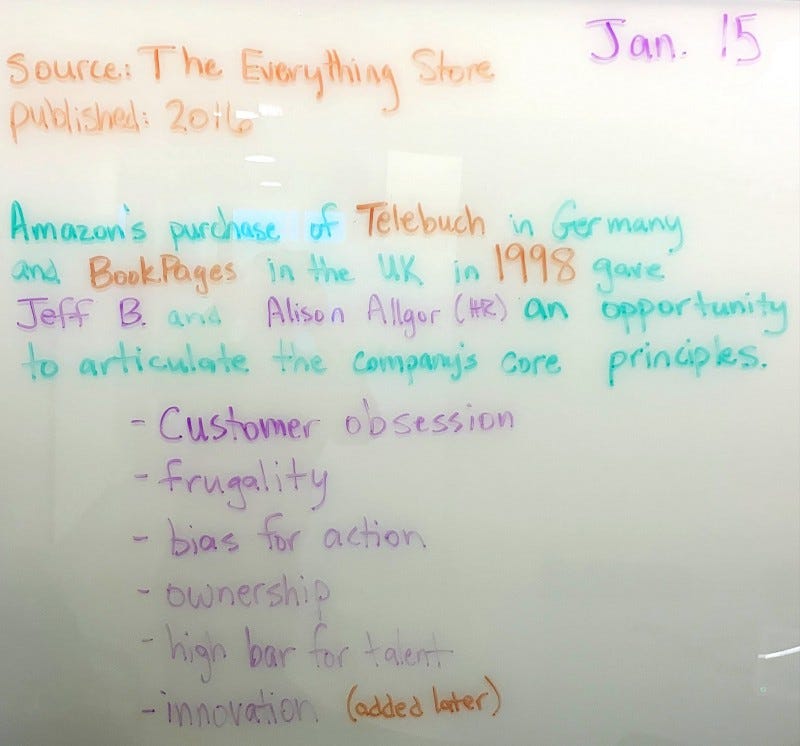 Jan. 15
Source: The Everything Store
published: 2016
Amazon's purchase of Telebuch in Germany
and BookPages in the UK in 1998 gave
Jeff B. and Alison Allgor (HR) an opportunity
to articulate the company's core principles.
- Customer obsession
- frugality
- bias for action
- ownership
- high bar for talent
- innovation (added later)